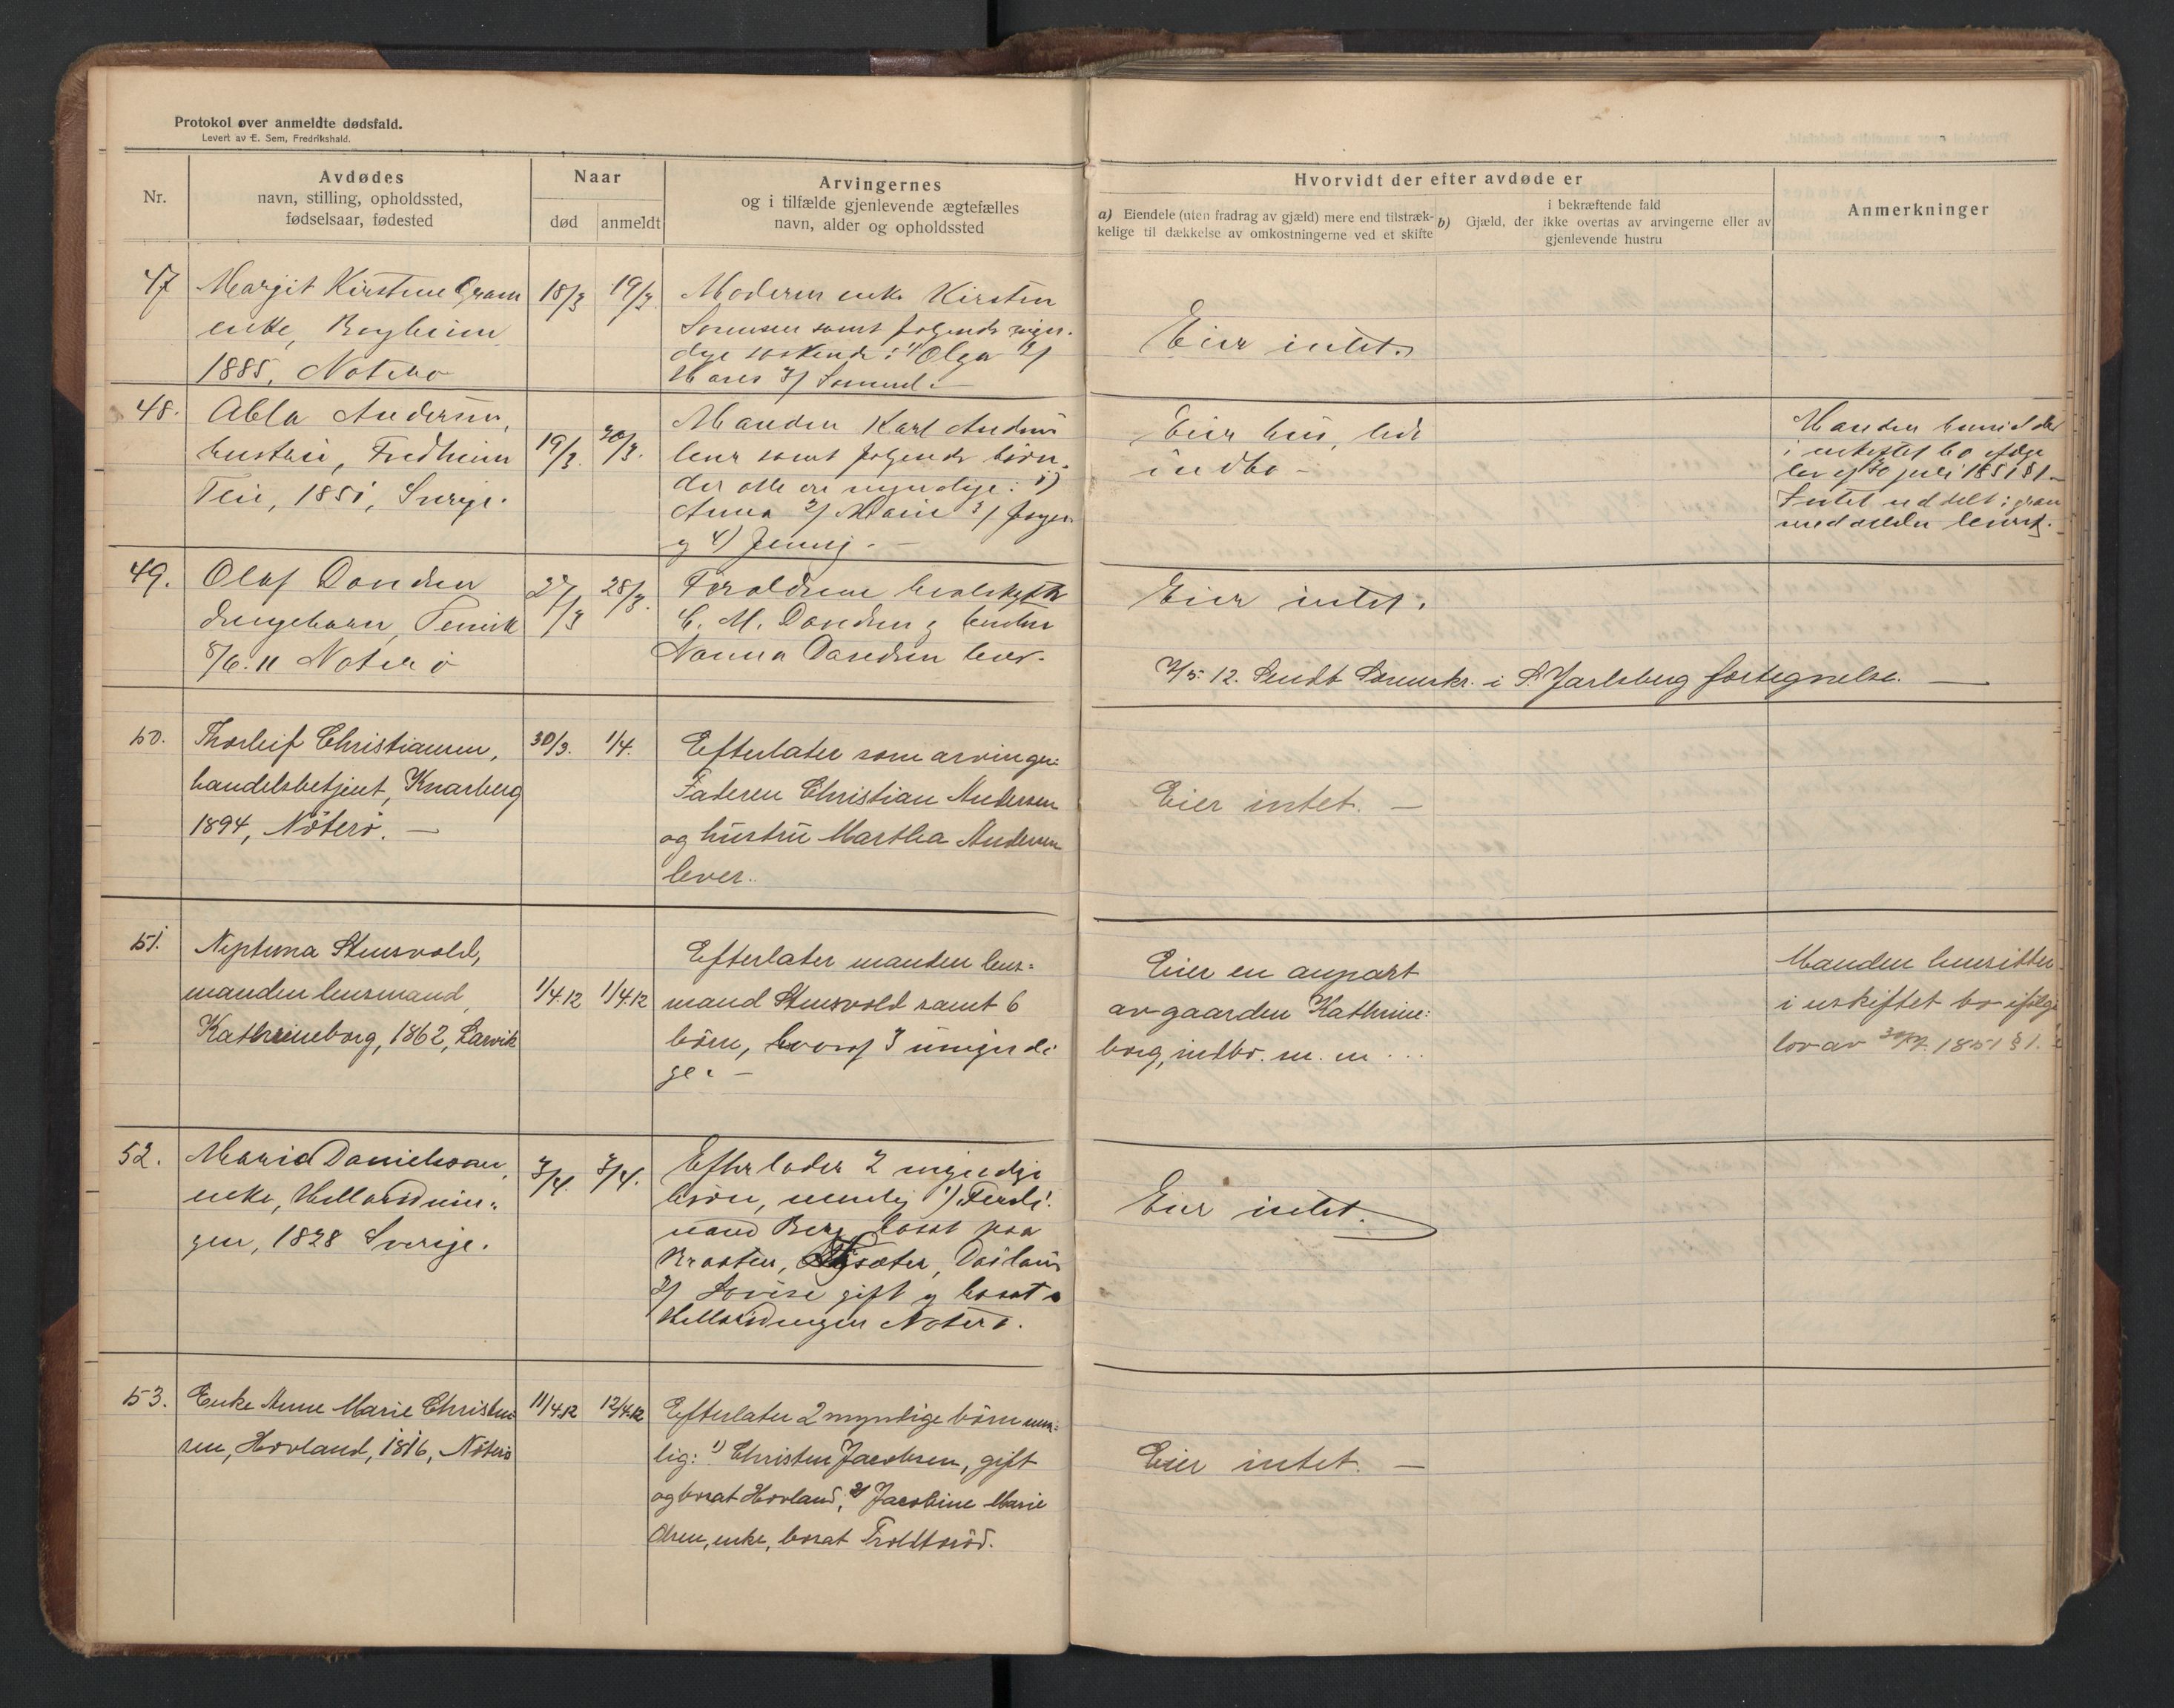 Protokol over anmeldte dødsfald.
Levert av E. Sem, Fredrikshald.
Nr.
Avdødes
navn, stilling, opholdssted,
fødselsaar, fødested
Naar
død
anmeldt
Arvingernes
og i tilfælde gjenlevende ægtefælles
navn, alder og opholdssted
Hvorvidt der efter avdøde er
a) Eiendele (uten fradrag av gjæld) mere end tilstræk-
kelige til dækkelse av omkostningerne ved et skifte
i bekræftende fald
b) Gjæld, der ikke overtas av arvingerne eller av
gjenlevende hustru
Anmerkninger
47
Margit Kirstine Gram
enke,
1885, Noterø
18/3
19/3.
Moderen enke Kirsten
Sørensen samt følgende
søskende: 1) Olga 2)
3)
Eier intet.
48.
Abla Andersen,
hustru, Fredheim
Teie, 1851, Sverige.
19/3.
20/3.
Manden Karl Anders
samt følgende børn
der alle ere myndige: 1)
Anna 2) Marie 3)
og 4) Jenny. —
Eier hus,
indbo —
Manden
i uskiftet bo ifølge
lov af 30 juli 1851 § 1 —
49.
Olaf Davidsen
drengebarn,
8/6. 11 Noterø
27/3
28/3.
Forældrene hvalskytter
C. M. Davidsen og hustru
Nanna Davidsen lever.
Eier intet.
12. Sendt Sorenskr. i S. Jarlsberg fortegnelse. —
50.
Thorleif Christiansen,
handelsbetjent, Knarberg
1894, Nøterø. —
30/3.
1/4.
Efterlater som arvinger:
Faderen Christian Andersen
og hustru Marthea Andersen
lever.
Eier intet. —
51.
Neptuna Stensvold,
manden lensmand
Kathrineborg, 1862, Larvik
1/4.12
1/4.12
Efterlater manden lens=
mand Stensvold samt 6
børn, hvoraf 3 umyndi
ge. —
Eier en anpart
av gaarden Kathrine:
borg, indbo. m. m. . .
Manden hensitter
i uskiftet bo ifølge
lov av 30/7. 1851 § 1.
52.
Maria Danielsen,
enke,
gen, 1828 Sverige.
3/4.
3/4.
Efterlader 2 myndige
børn, nemlig 1) Ferdi
nand Berg bosat paa
Braaten,
2) Lovise gift og bosat
Noterø.
Eier intet.
53.
Enke Anne Marie Christen
sen, Hovland, 1816, Nøterø
11/4.12
12/4.12
Efterlater 2 myndige børn nem=
lig: 1) Christen Jacobsen, gift
og bosat Hovland; 2) Jacobine Marie
Olsen, enke, bosat
Eier intet. —